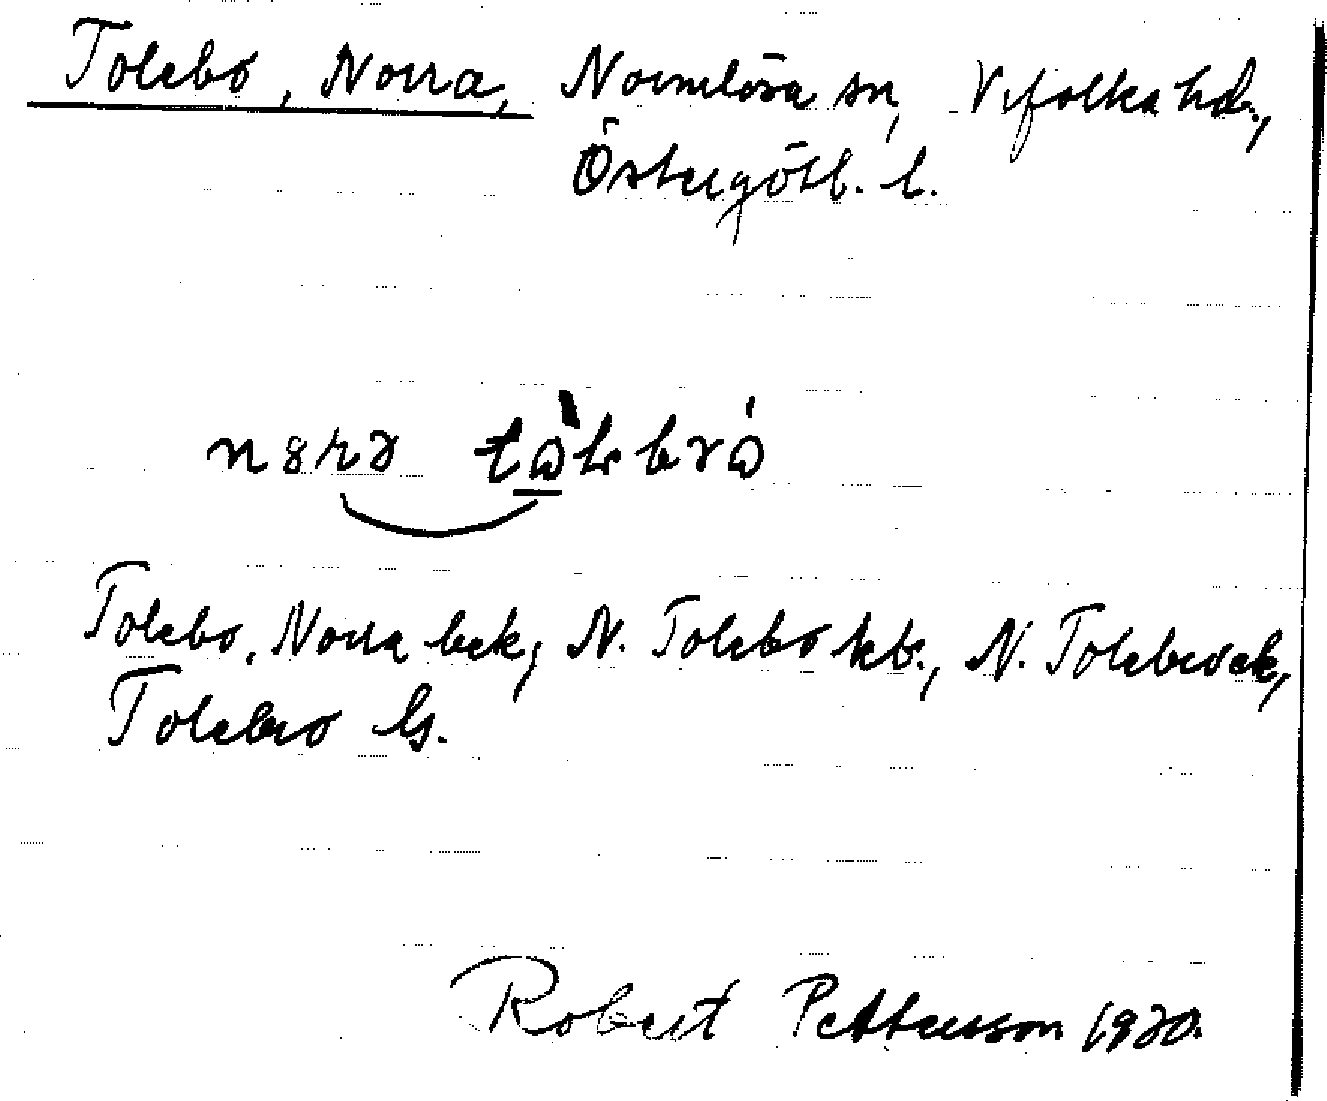 Tolebo, Norra, Normlösa sn, Vifolka hd.,
Östergötl. l.
Tolebo, Norra bek, N. Tolebo kb., N. Tolebroek,
Tolebro Gs.
Robert Pettersson 1930.